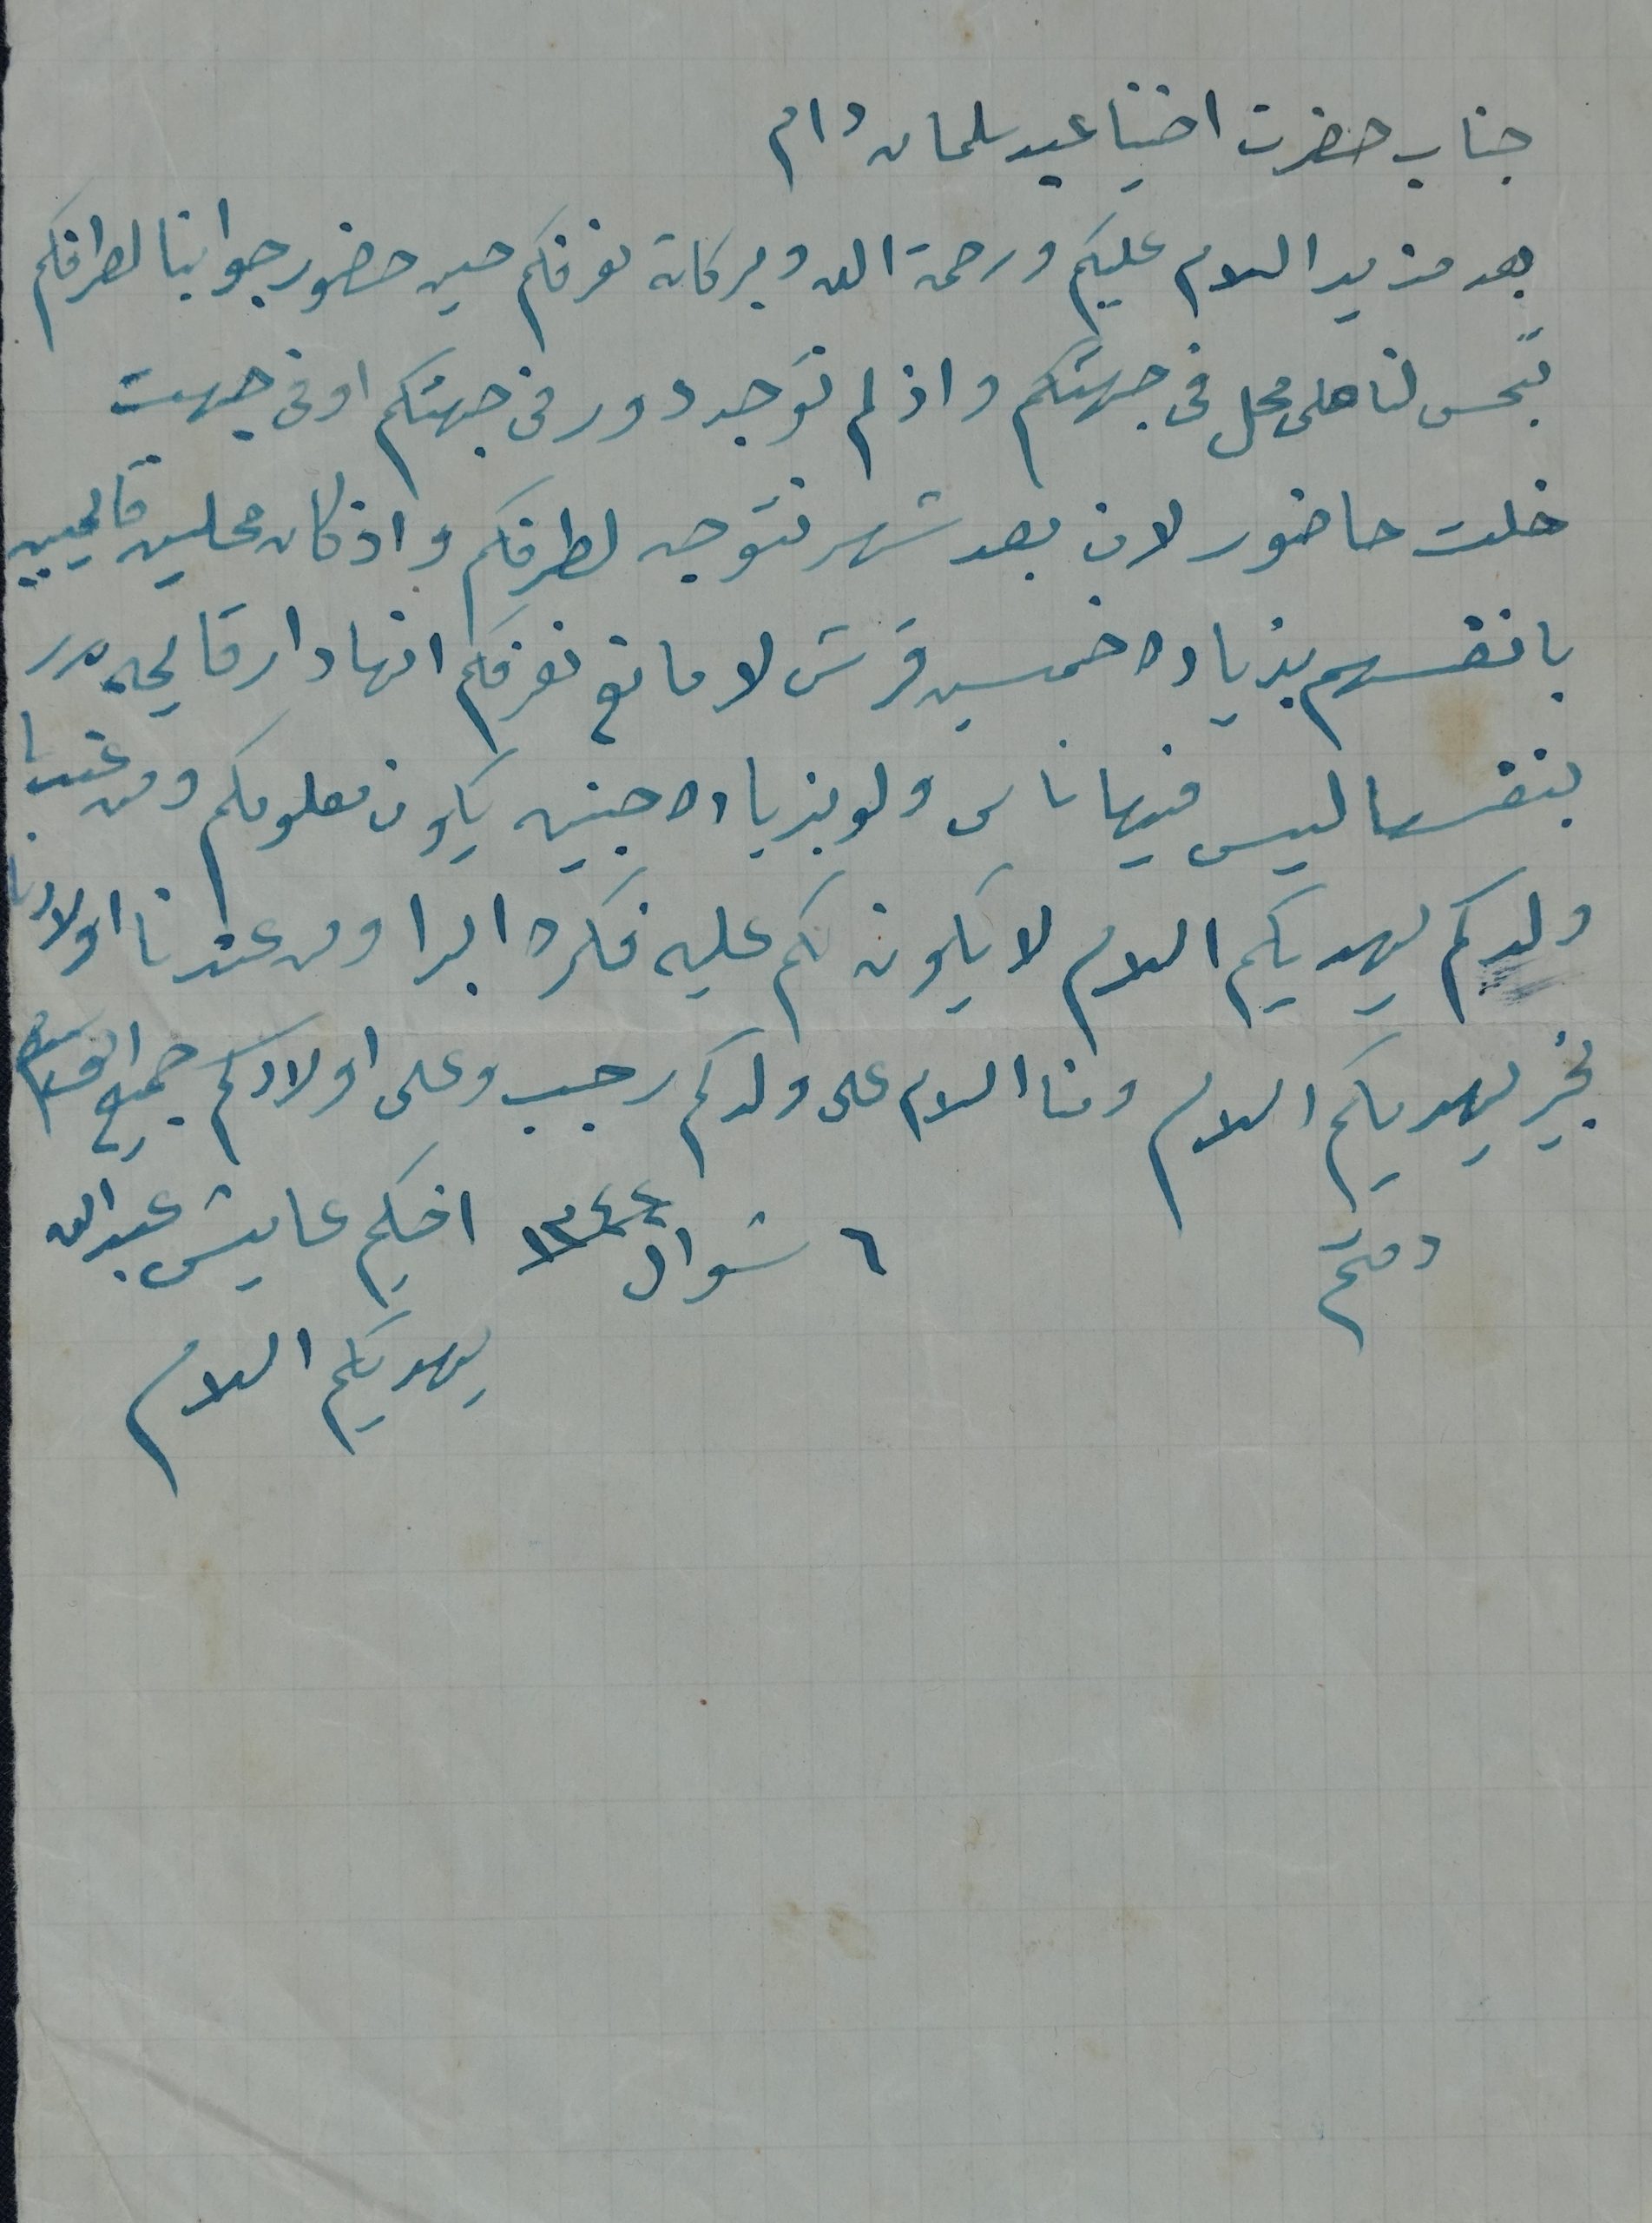 جناب حضرت اخينا عيد سلمان دام
بعد مزيد السلام عليكم ورحمة الله وبركاته نعرفكم حين حضور جوابنا لطرفكم
تبحس لنا على محل فى جهتكم واذ لم توجد دور فى جهتكم او فى جهت
خلت حاضور لان بعد شهر نتوجه لطرفكم واذ كان محلين قايمين
بانفسهم بزياده خمسين قرش لا مانع نعرفكم انها دار قايمه
بنفسها ليس فيها ناس ولو بزياده جنيه يكون معلومكم ومن
ولدكم يهديكم السلام لا يكون لكم عليه فكره ابدا ومن عندنا اولادنا
بخير يهديكم السلام ومنا السلام على ولدكم رجب وعلى اولادكم جميع
ودمتم
٦ شوال ١٣٤٤ اخيكم عايش عبدالله
يهديكم السلام